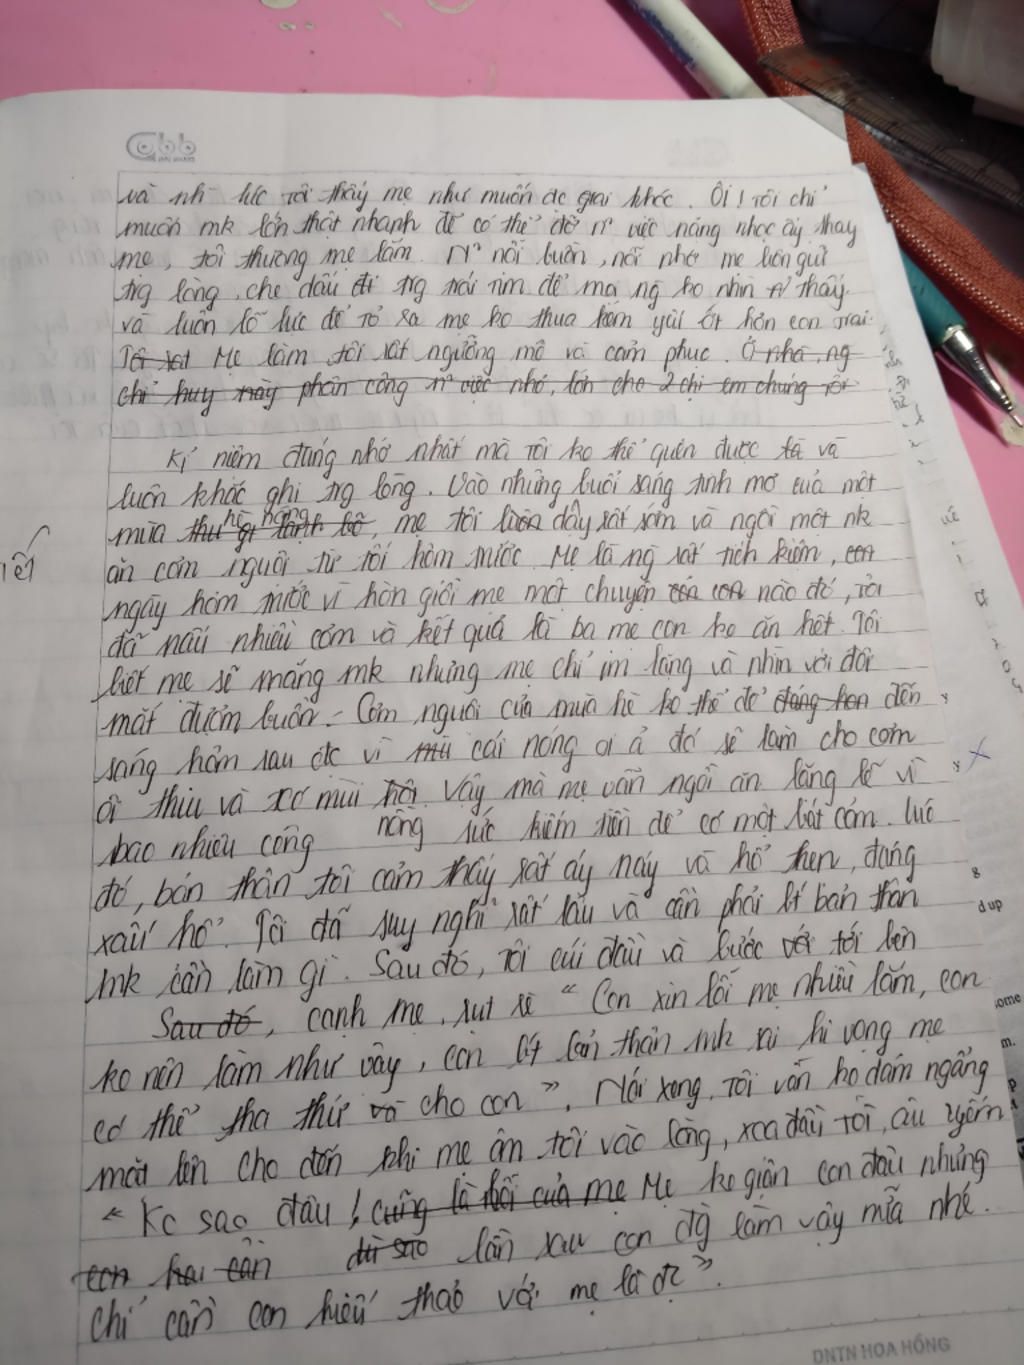 và nh lúc tôi thấy mẹ như muốn đc giai khóc. Ôi! Tôi chỉ
muốn mk lớn thật nhanh để có thể đỡ n~ việc nặng nhọc ấy thay
mẹ, tôi thương mẹ lắm. N~ nỗi buồn, nỗi nhớ mẹ luôn giữ
trg lòng, che dấu đi trg trái tim để mọi ng ko nhìn thấy
và luôn lỗ lực để tỏ ra mẹ ko thua kém yếu ớt hơn con trai.
Tôi rất Mẹ làm tôi rất ngưỡng mộ và cảm phục. Ở nhà, ng
chỉ huy này phân công n~ việc nhỏ, lớn cho 2 chị em chúng tôi
Kỉ niệm đáng nhớ nhất mà tôi ko thể quên được là và
luôn khắc ghi trg lòng. Vào những buổi sáng tinh mơ của một
mùa thu hè nóng lạnh, mẹ tôi luôn dậy rất sớm và ngồi một mk
ăn cơm nguội từ tối hôm trước. Mẹ là ng rất tiết kiệm, con
ngày hôm trước vì hờn giỗi mẹ một chuyện con nào đó, tôi
đã nấu nhiều cơm và kết quả là ba mẹ con ko ăn hết. Tôi
biết mẹ sẽ mắng mk nhưng mẹ chỉ im lặng và nhìn với đôi
mắt đượm buồn. Cơm nguội của mùa hè ko thể để đến
sáng hôm sau đc vì mùi cái nóng oi ả đó sẽ làm cho cơm
ôi thiu và xơ mùi hôi. Vậy mà mẹ vẫn ngồi ăn lặng lẽ vì
bao nhiêu công nông sức kiếm tiền để có một bát cơm. Lúc
đó, bản thân tôi cảm thấy rất áy náy và hổ thẹn, đáng
xấu hổ. Tôi đã suy nghĩ rất lâu và cần phải bt bản thân
mk cần làm gì. Sau đó, tôi cúi đầu và bước với tới bên
Sau đó, cạnh mẹ, sụt sè “ Con xin lỗi mẹ nhiều lắm, con
ko nên làm như vậy, con bt bản thân mk hi vọng mẹ
có thể tha thứ và cho con ”. Nói xong, tôi vẫn ko dám ngẩng
mặt lên cho đến khi mẹ ôm tôi vào lòng, xoa đầu tôi, âu yếm
“ Ko sao đâu ! cũng là lỗi của mẹ Mẹ ko giận con đâu nhưng
con hai cần dù sao lần sau con đg làm vậy nữa nhé.
Chỉ cần con hiếu thảo với mẹ là đc”.
DNTN HOA HỒNG